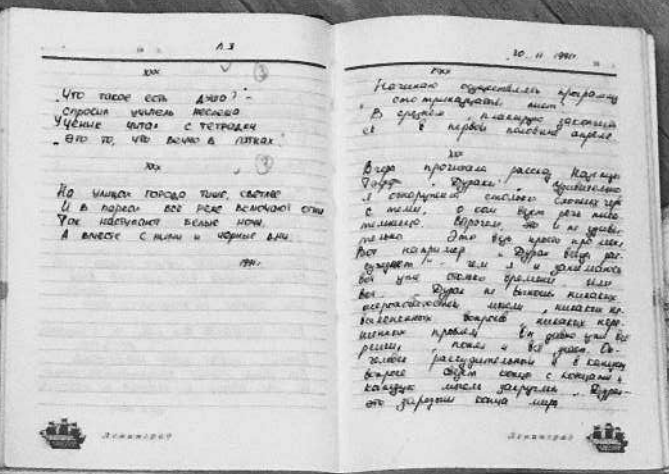 xxx
"Что такое есть душа?" -
Спросил учитель
Ученик читал с тетрадки
"Это то, что вечно в пятках".
xxx
На улицах города тише, светлее
И в парках все реже включают огни
Так наступают белые ночи,
А вместе с ними и черные дни.
1991г.
Ленинград
30 II 1991г
xxx
Начинаю осуществлять программу
"сто тридцатый лист".
В среднем, планирую закончить
её в первой половине апреля
xxx
Вчера прочитала рассказ Надежды
Тэффи "Дураки". Удивительно
я обнаружила столько схожих черт
с теми, о ком идет речь
Впрочем, это и не удиви-
тельно. Это ведь просто про меня.
Вот например "Дурак всегда рас-
суждает" - чем я и занимаюсь
вот уже столько времени. Или
вот Дурак не выносит никаких
мысли, никаких не-
вопросов, никаких нере-
шенных проблем. Он давно уже все
решил, понял и все знает. Он -
человек рассудительный и в каждом
вопросе сведет концы с концами и
каждую мысль закруглит. "Дурак -
это зародыш конца мира
Ленинград